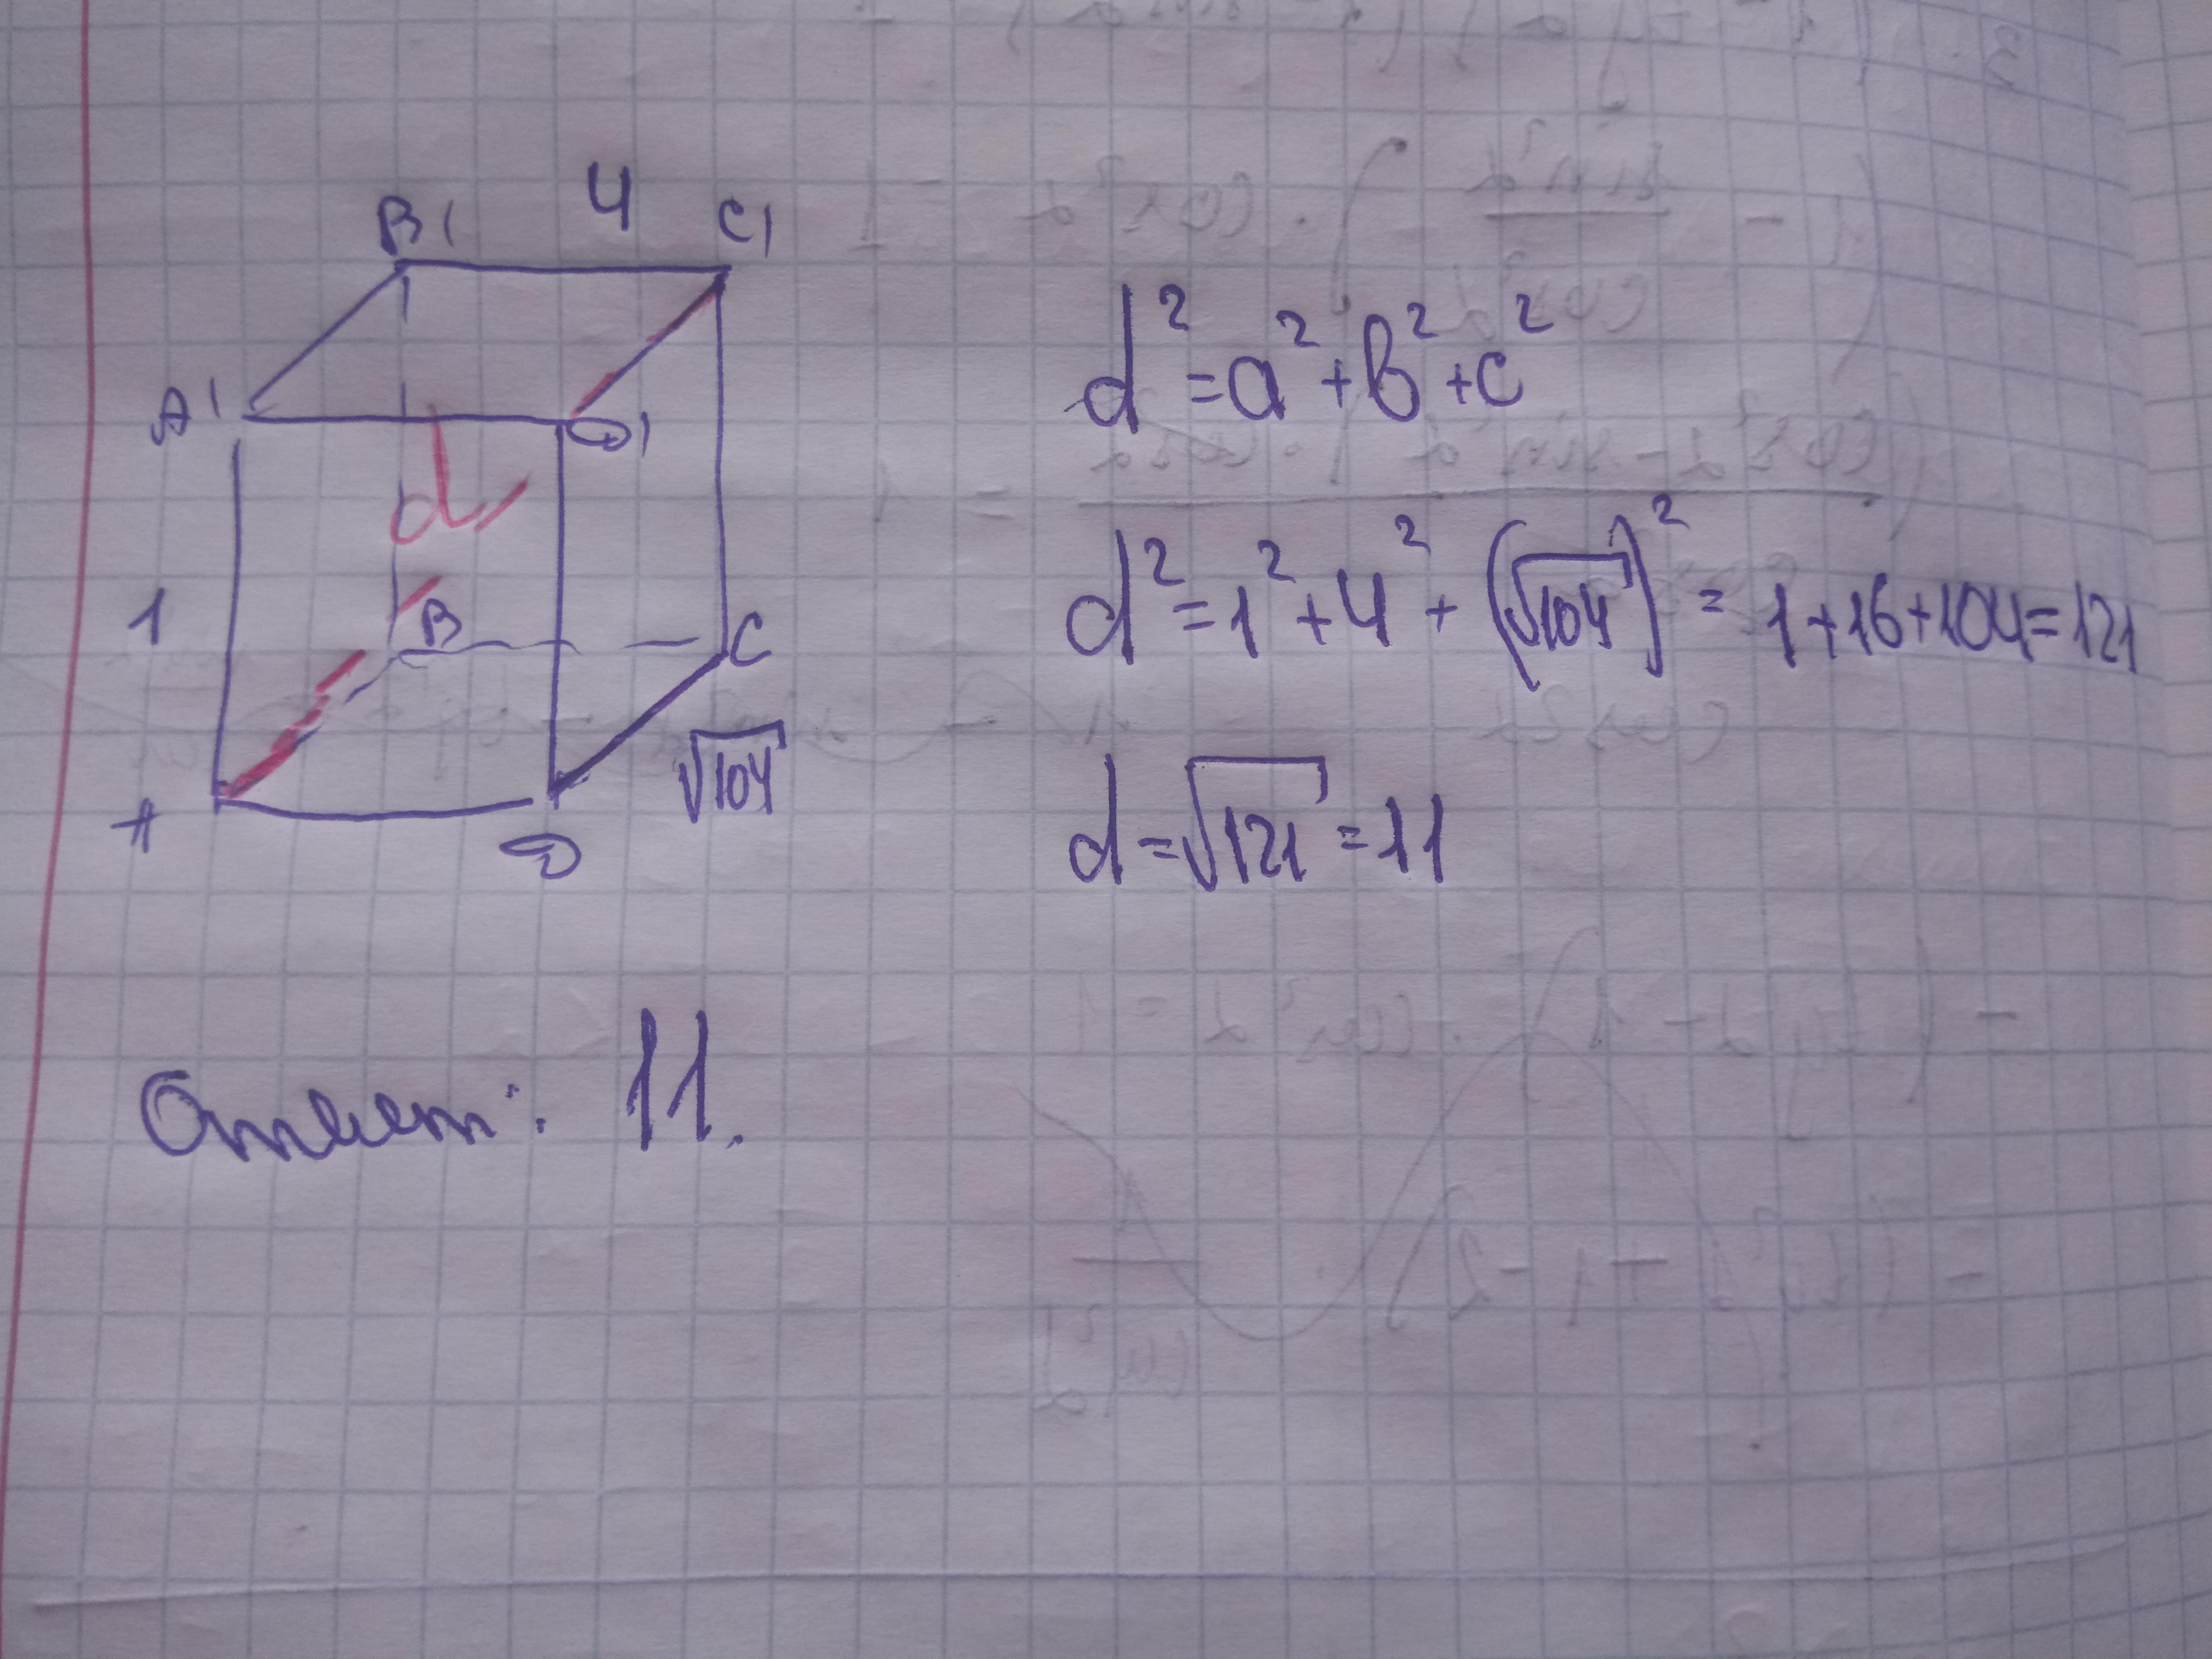 B1 4 C1
A1 D1
d
1 B C
√104
A D
d² = a² + b² + c²
d² = 1² + 4² + (√104)² = 1 + 16 + 104 = 121
d = √121 = 11
Ответ: 11.